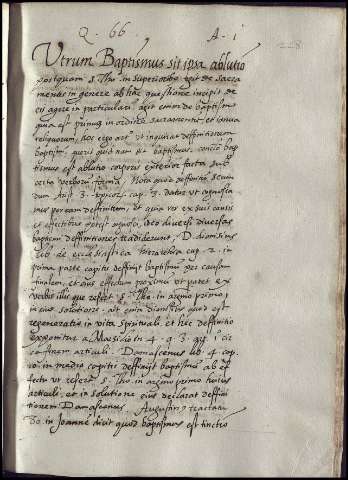 Q. 66 A. i
228
Utrum Baptismus sit ipsa ablutio
postquam s. Tho. in superioribus egit de sacra
mentis in genere ab hac questione incipit de
eis agere in particulari agit enim de baptismo
quia est primum in ordine sacramentum et ianua
religuorum, hoc ergo art. ut inquirat deffinitionem
baptismi querit quid nam sit baptismus
tismus est ablutio corporis exterior facta sub
verborum forma. Nota quod secun
dum Arist. cap. datur ut cognosca
mus per eam deffinitum, et quia res ex suis causis
et effectibus potest cognosci, ideo diversi diversas
baptismi deffinitiones tradiderunt, D. dionisius
lib. de ecclesiastica hierarchia cap. 2. in
prima parte capitis deffinit baptismum per causam
finalem, et eius effectum proximum ut patet ex
verbis illius que refert s. Tho. in argumento primo
in cuius solutione ait quod dionisius quod est
regenerativus in vita spirituali, et hec deffinitio
exponitur a Magistro in 4. q. 3. art. 1. circa
finem articuli. Damascenus lib. 4. cap.
in medio capitis deffinit baptismum ab ef
fectu ut refert s. Tho. in argumento primo huius
articuli, et in solutione eius declarat deffini
tionem Damasceni. Augustinus tractatu
80 in Joannem dicit quod baptismus est tinctio